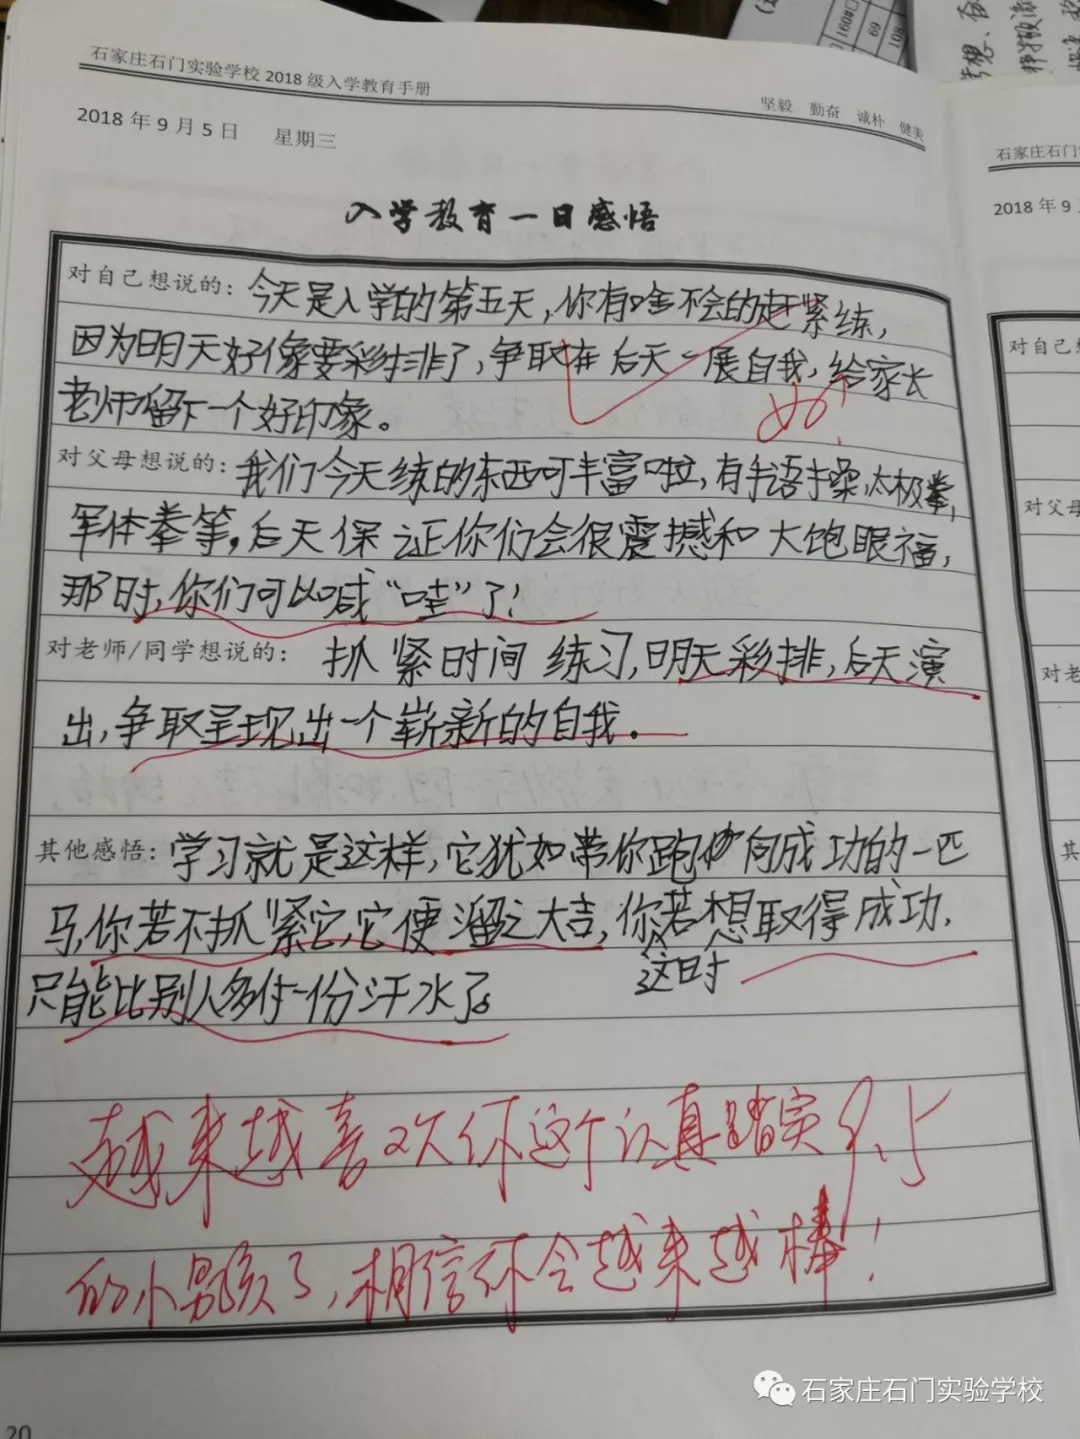 石家庄石门实验学校2018级入学教育手册
坚毅 勤奋 诚朴 健美
2018年9月5日 星期三
入学教育一日感悟
对自己想说的：今天是入学的第五天，你有啥不会的赶紧练，
因为明天好像要彩排了，争取在后天一展自我，给家长
老师留下一个好印象。
对父母想说的：我们今天练的东西可丰富啦，有手语手操，太极拳，
军体拳等，后天保证你们会很震撼和大饱眼福，
那时，你们可以喊“哇”了！
对老师/同学想说的：抓紧时间练习，明天彩排，后天演
出，争取呈现出一个崭新的自我。
其他感悟：学习就是这样，它犹如带你跑向成功的一匹
马，你若不抓紧它，它便溜之大吉，你若想取得成功，
这时
只能比别人多付一份汗水了。
越来越喜欢你这个认真踏实
9.5
的小男孩了，相信你会越来越棒！
20
石家庄石门
2018年9
对自己
对父母
对老
其
160
69
108
石家庄石门实验学校